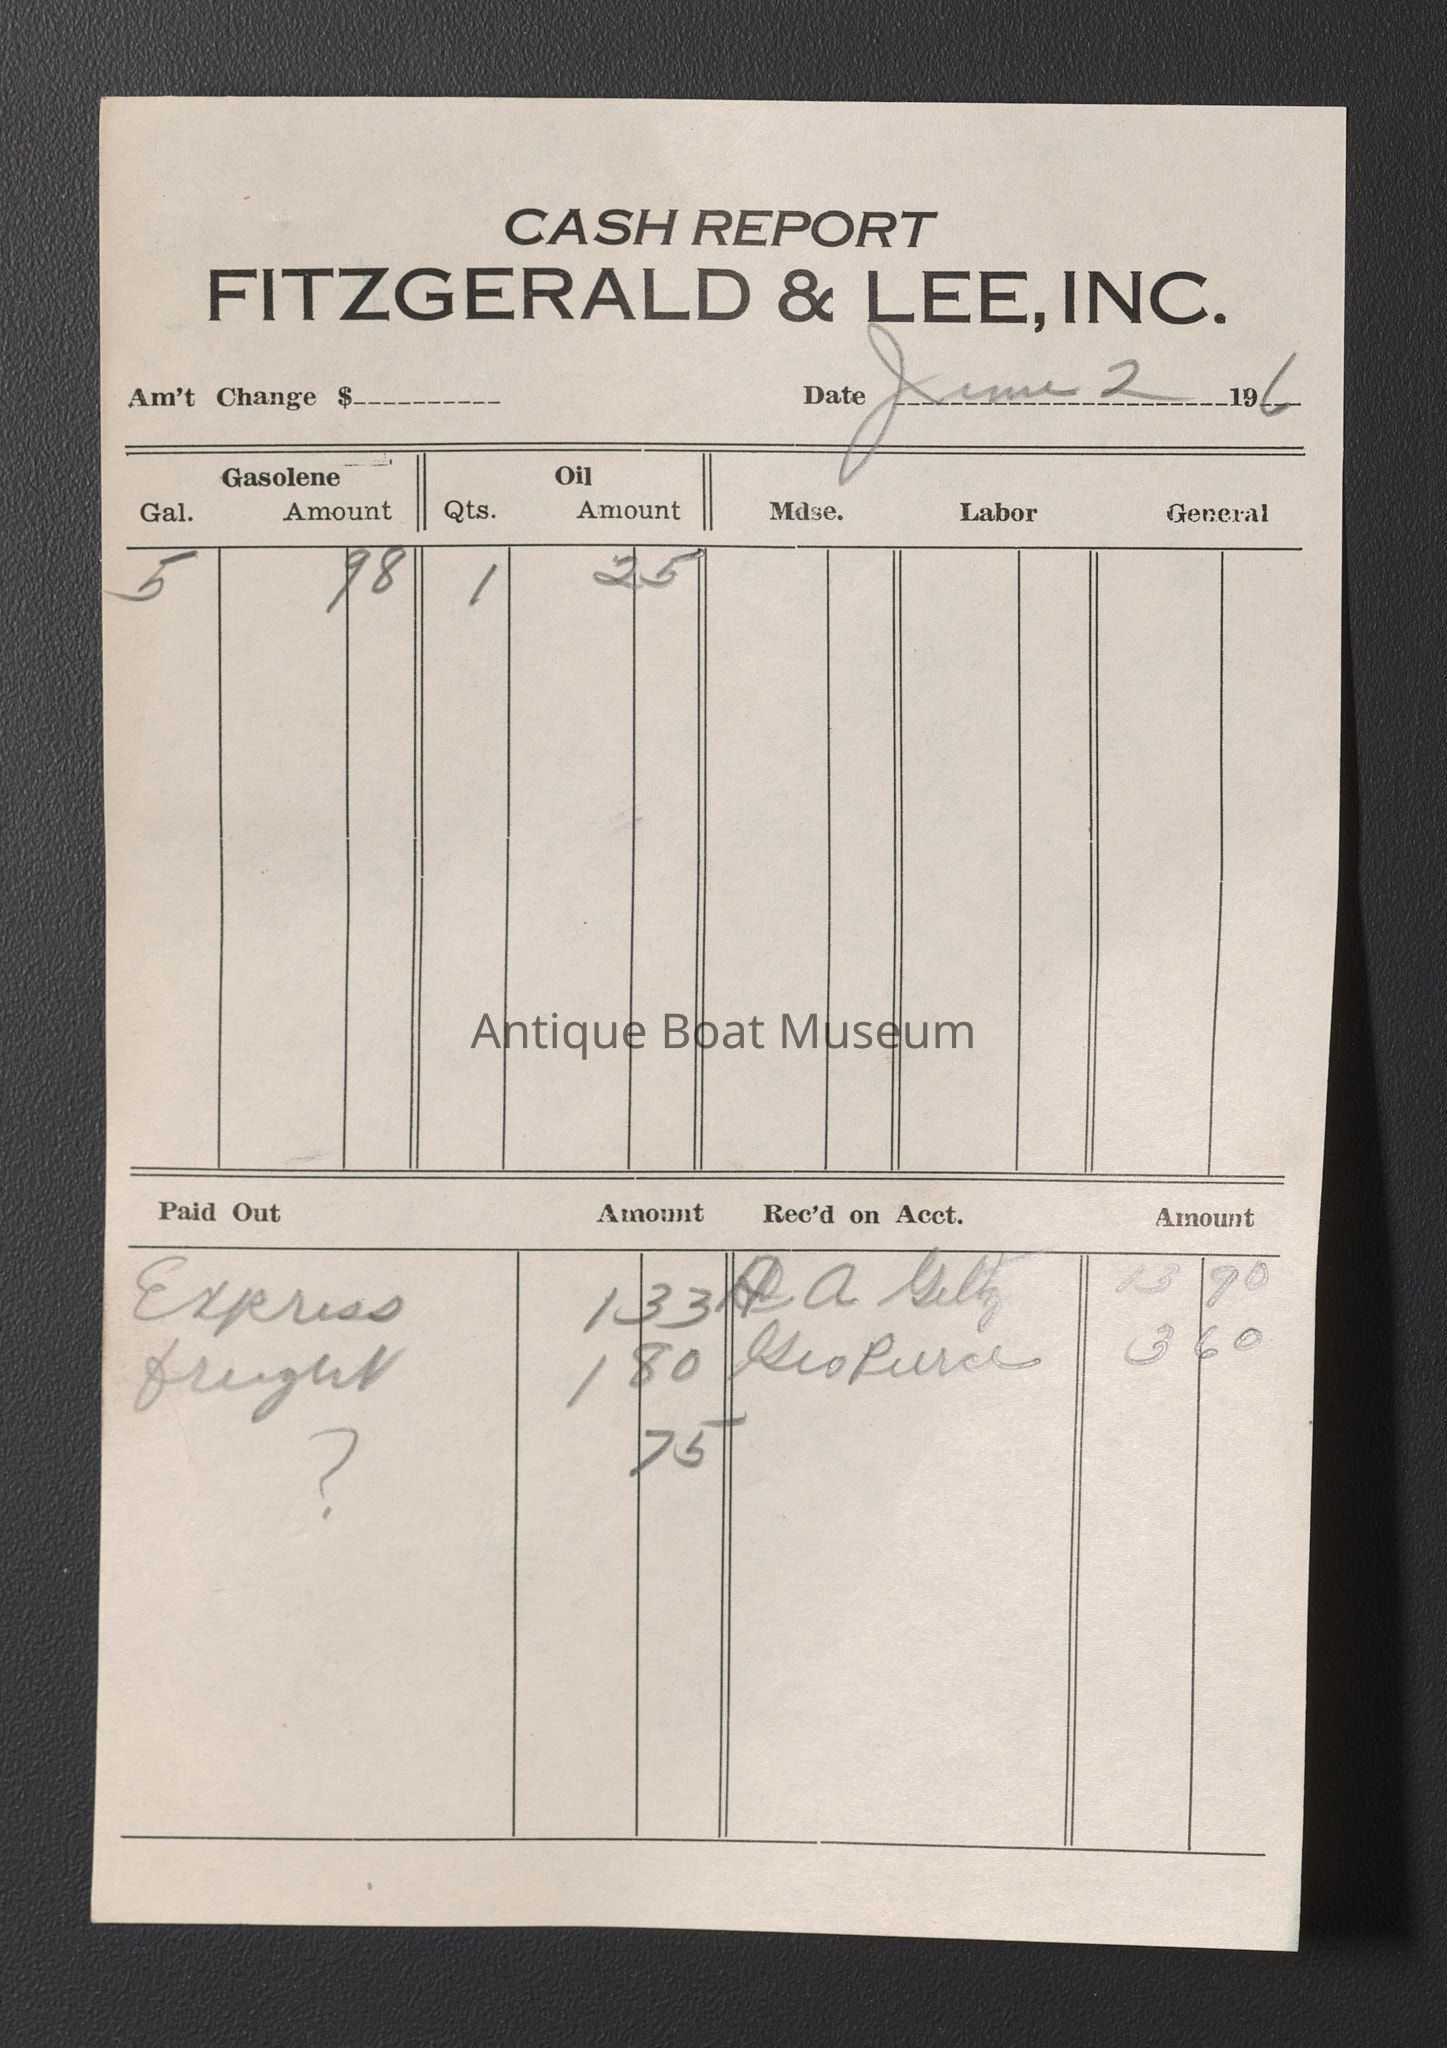 CASH REPORT
FITZGERALD & LEE, INC.
Am't Change $ Date June 2 196
Gasolene Oil
Gal. Amount Qts. Amount Mdse. Labor General
5 98 1 25
Antique Boat Museum
Paid Out Amount Rec'd on Acct. Amount
Express 1 33 A 13 90
freight 1 80 Geo Pierce 3 60
? 75